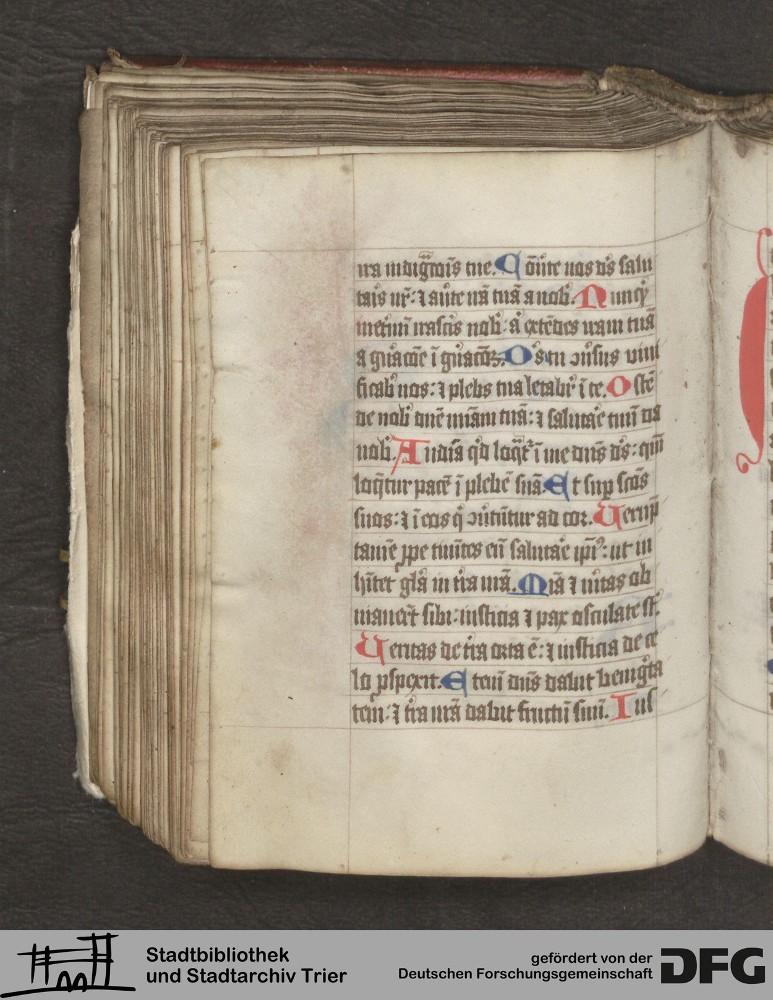 ira indigͣtıōis tue. Cōu̅te nos d̅s salu
taıs̄ nr̄: ⁊ au̅te ırā tuā a nob̅. Nunqͥ
ınet̄nū ırascıs nob̅: a̅ exte̅des ıram tuā
a gn̄acōe ī gn̄acōꝫ. Os tu ↄu̅sus uiui
ficab̅ nos: ⁊ plebs tua letabıᷣ ī te. Oste̅
de nob̅ dn̄e mıāꝫ tuā: ⁊ salutaᷣe tuū da
nob̅. Audiā qͩ loq̄tᷣ ī me dn̄s d̅s: qm̄
loq̄tur pace̅ ī plebe̅ suā. Et sup̲ sc̄os
suos: ⁊ ī eos q̇ ↄu̅tūtur ad cor. Uerūp̄
tame̅ ꝓpe tıme̅tes eū salutaᷣe ip̄iꝰ: ut in
hıtet gl̄a in tr̄a nr̄a. Mıā ⁊ u̅itas ob
uıaue̅rt sibi: iusticia ⁊ pax osculate st̄.
Ueritas de tr̄a orta e̅: ⁊ iusticia de ce
lo ꝓspex̄it. Eteni̅ dn̄s dabit benigͥta
tem: ⁊ tr̄a nr̄a dabit fructū suū. Ius
Stadtbibliothek
und Stadtarchiv Trier
gefördert von der
Deutschen Forschungsgemeinschaft
DFG